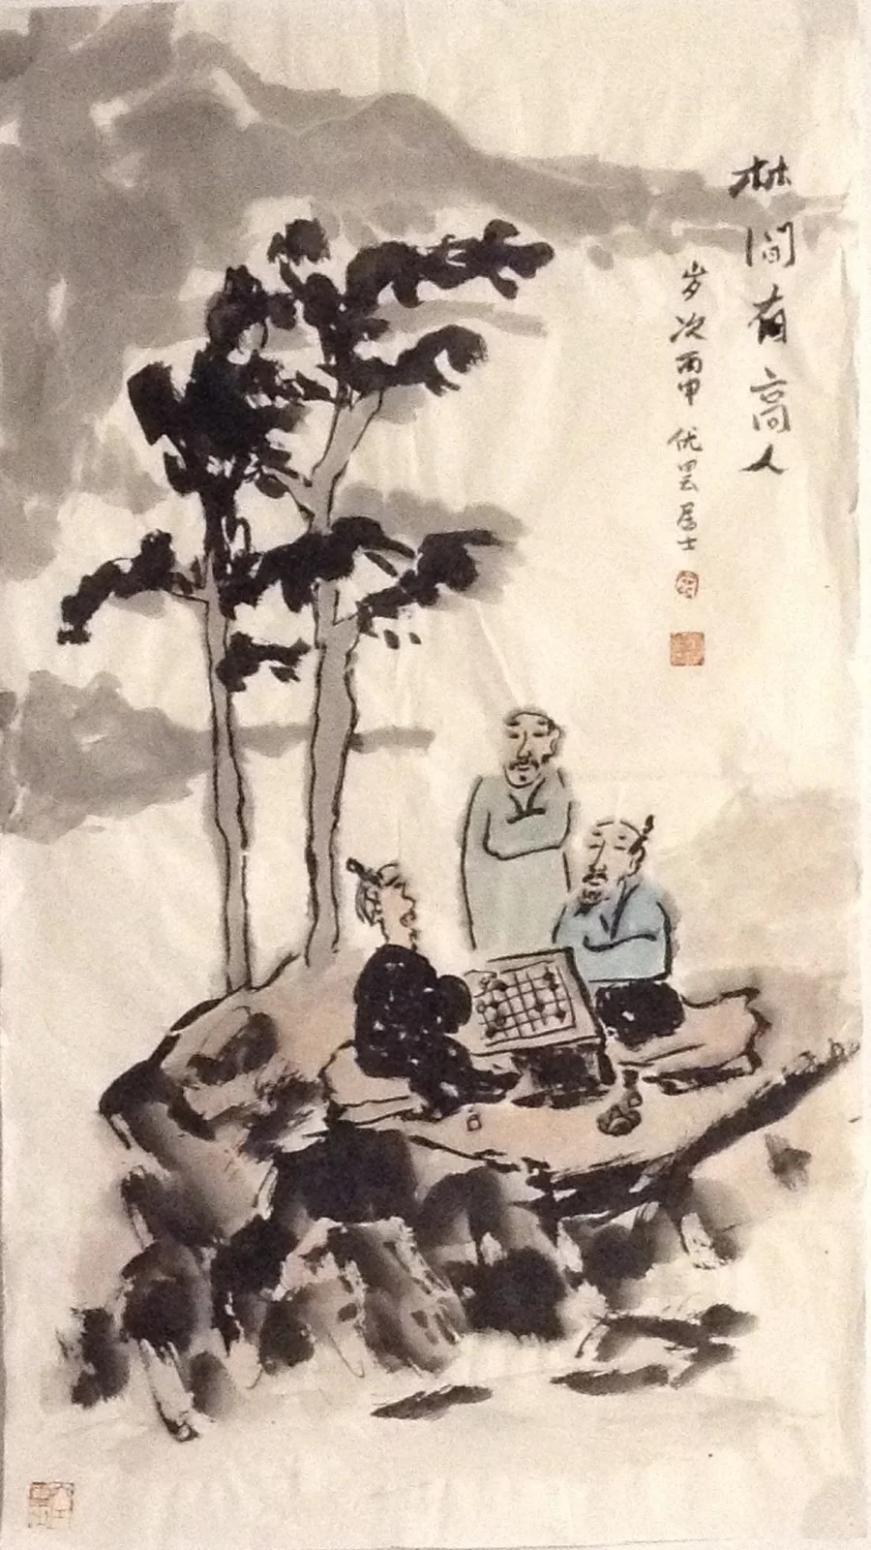 林间有高人
岁次丙申 优昙居士